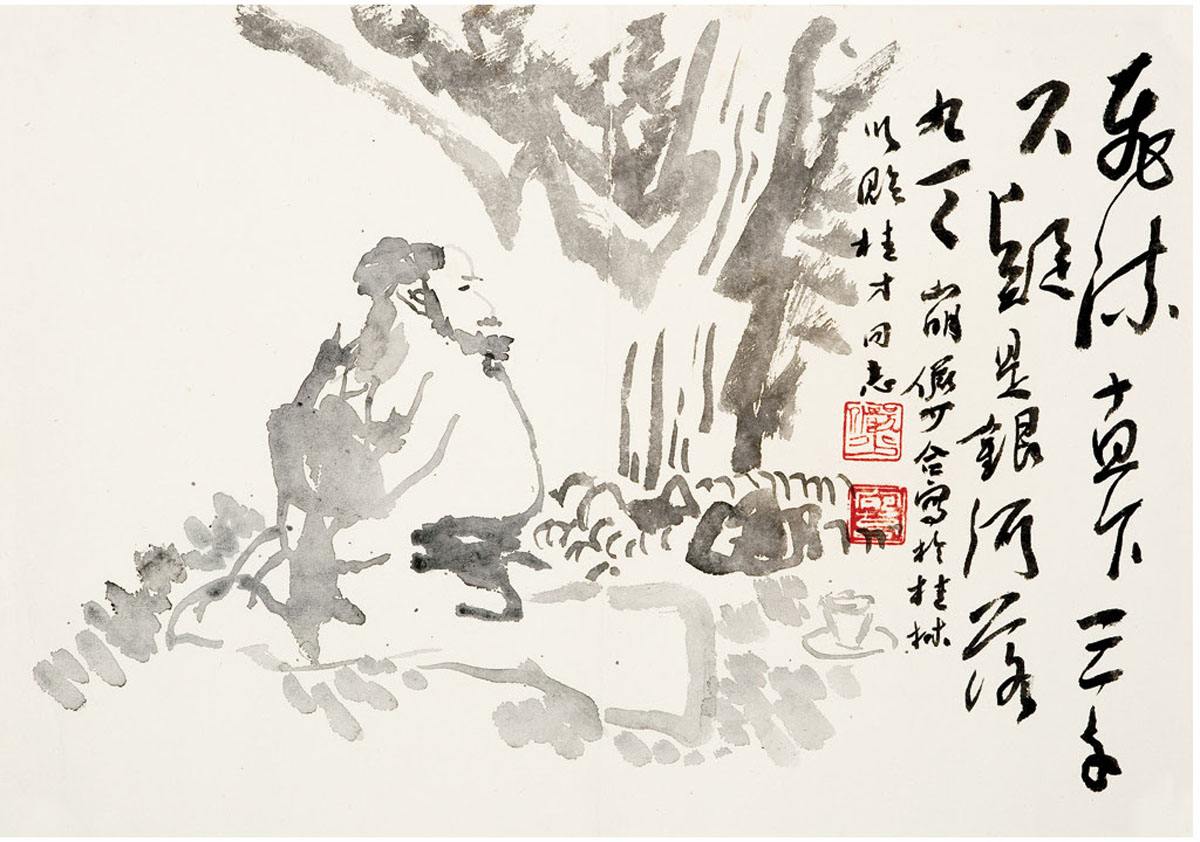 飛流直下三千
尺疑是銀河落
九天 山明儼少合寫於桂林
以貽桂才同志